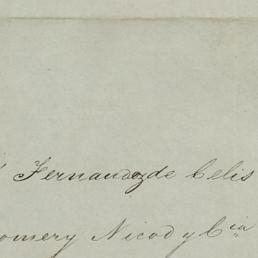 Fernandez de Celis
omery Nicod y Cia